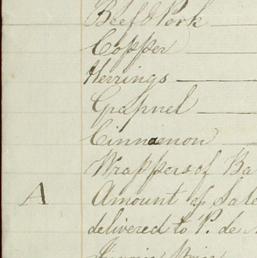 Beef & Pork
Copper
Herrings
Grapnel
Cinnamon
Wrappers of Ba
A Amount of Sale
delivered to P. de